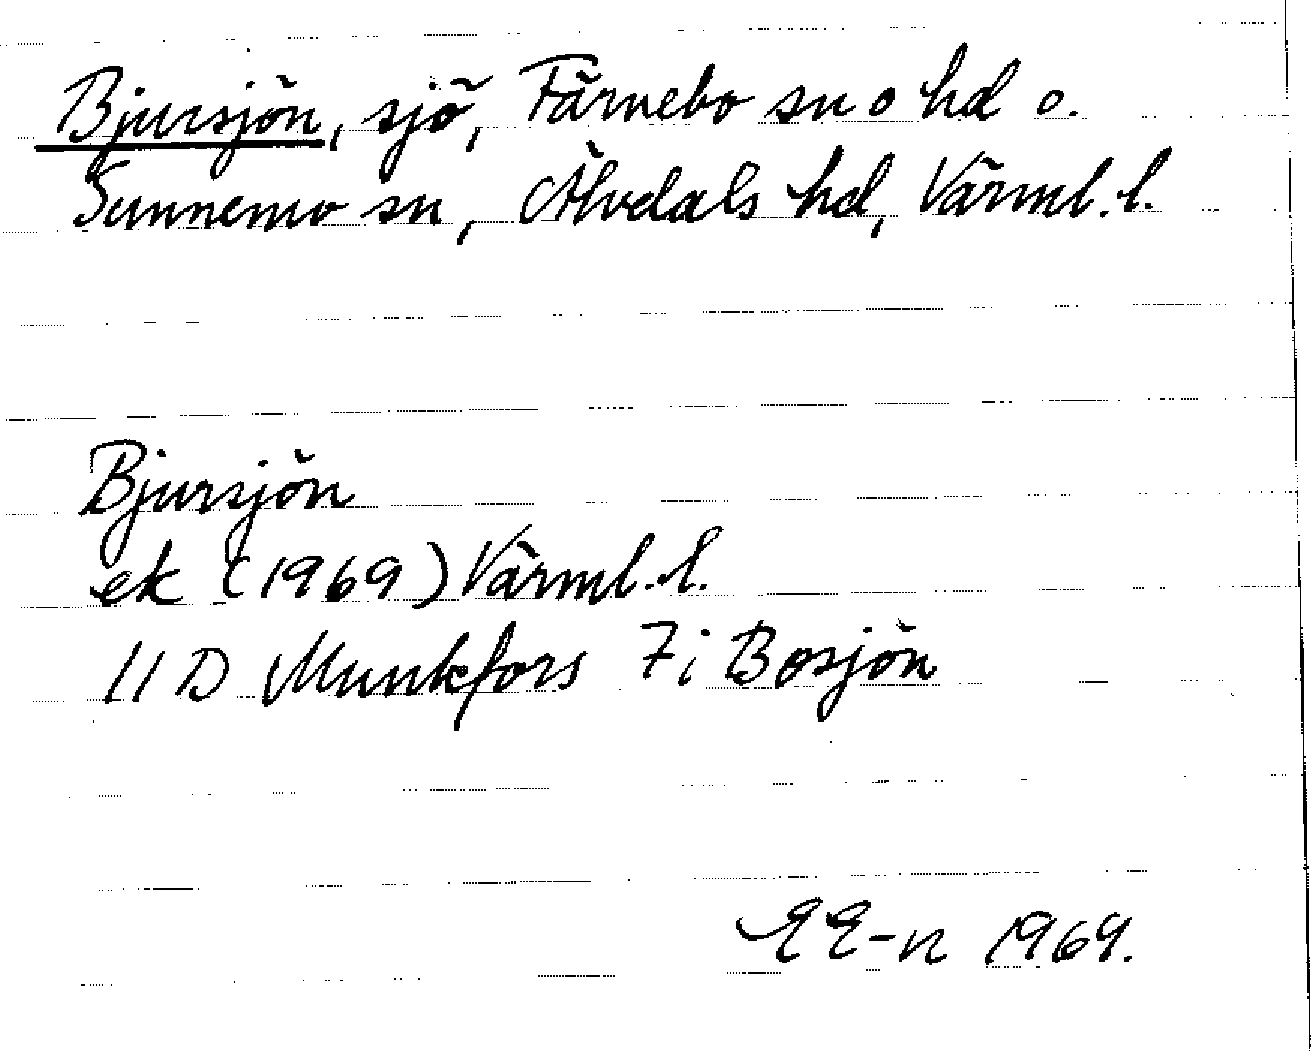 Bjursjön, sjö, Färnebo sn o hd o.
Sunnemo sn, Älvdals hd, Värml. l.
Bjursjön
ek (1969) Värml. l.
11 D Munkfors 7 i Bosjön
EE-n 1969.